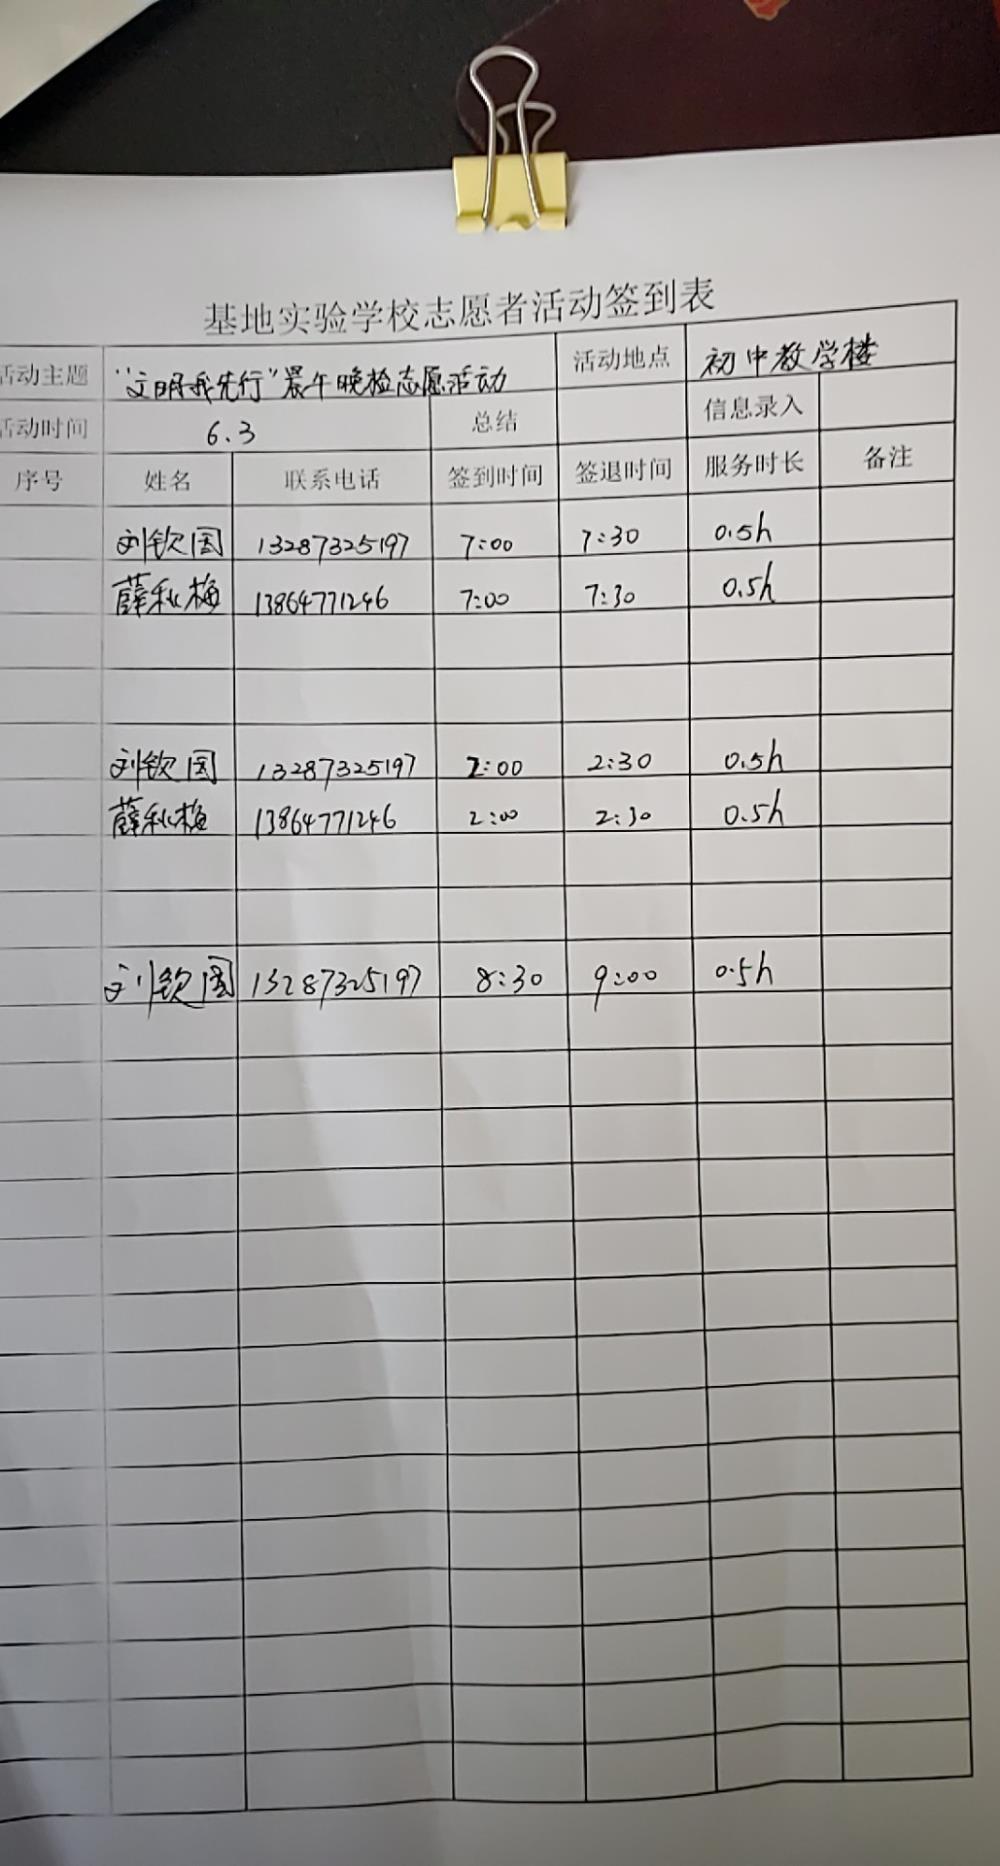 基地实验学校志愿者活动签到表
活动主题 “文明我先行”晨午晚检志愿活动 活动地点 初中教学楼
活动时间 6.3 总结 信息录入
序号 姓名 联系电话 签到时间 签退时间 服务时长 备注
刘钦国 13287325197 7:00 7:30 0.5h
薛秋梅 13864771246 7:00 7:30 0.5h
刘钦国 13287325197 2:00 2:30 0.5h
薛秋梅 13864771246 2:00 2:30 0.5h
刘钦国 13287325197 8:30 9:00 0.5h